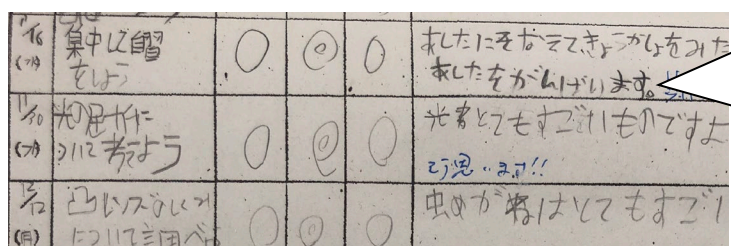 11/16
(月)
集中して自習
をしよう
○ ◎ ○
あしたにそなえてきょうかしょをみた
あしたをがんばります。
11/30
(月)
光の足すじに
ついて考てよう
○ ◎ ○
光者とてもすごいものですよ
そう思います!!
12/12
(月)
凸レンズのしくみ
について調べ
○ ◎ ○
虫めがねはとてもすごい